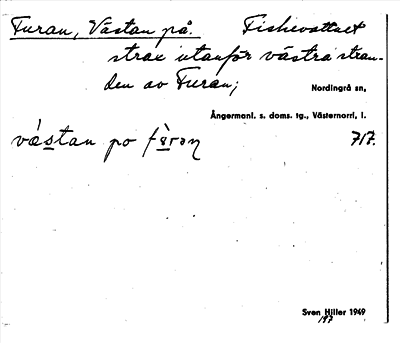 Furan, Västan på. Fiskevattnet
strax utanför västra stran-
den av Furan;
Nordingrå sn,
Ångermanl. s. doms. tg., Västernorrl. l.
västan po fùrən 717.
Sven Hiller 1949
197